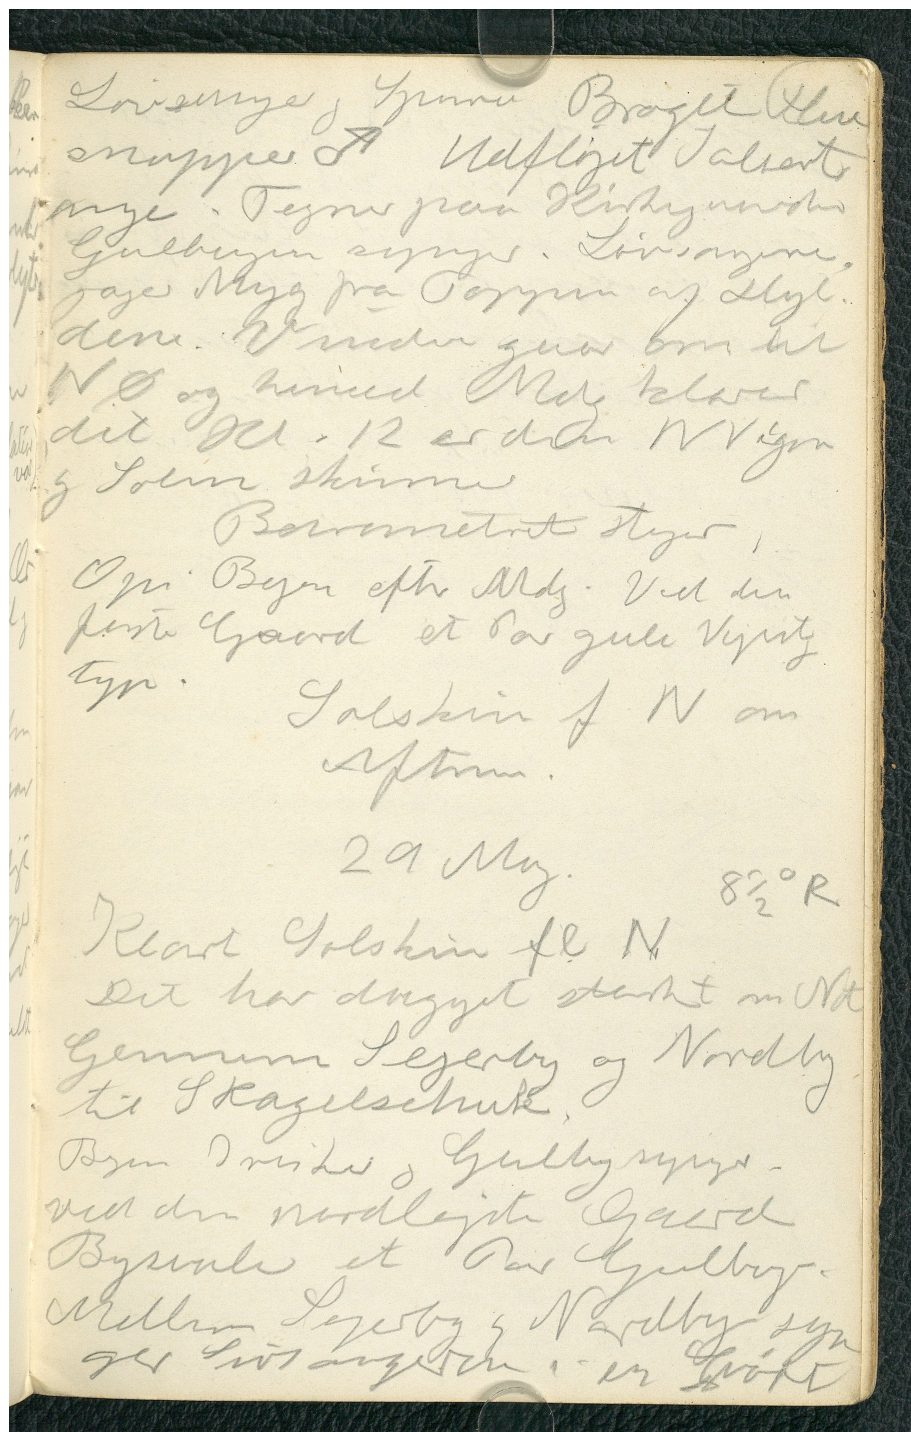 Løvsanger og Spurve Broget Flue
snapper ♂ Udflöjet Solsort
unge. Tegner paa Kirkegaarden
Gulbugen synger. Løvsangeren
jager Myg fra Toppen af Hyl-
dene. Vinden gaar om til
NØ og henad Mdg klarer
det Kl. 12 er den NV igen
og Solen skinner
Barometret stiger,
Op i Byen eftr Mdg. Ved den
første Gaard et Par gule Vipstj
Solskin f N om
Aftnen.
29 Maj.
8½° R
Klart Solskin fl N
Det har drygget stærkt om Nat
Gennem Sejerby og Nordby
til Skagelsehuk.
Byen Iriske og Gulbug synger.
ved den nordligste Gaard
Bysvale et Par Gulbuge.
Mellem Sejerby og Nordby syn
ger Løvsangeren. en